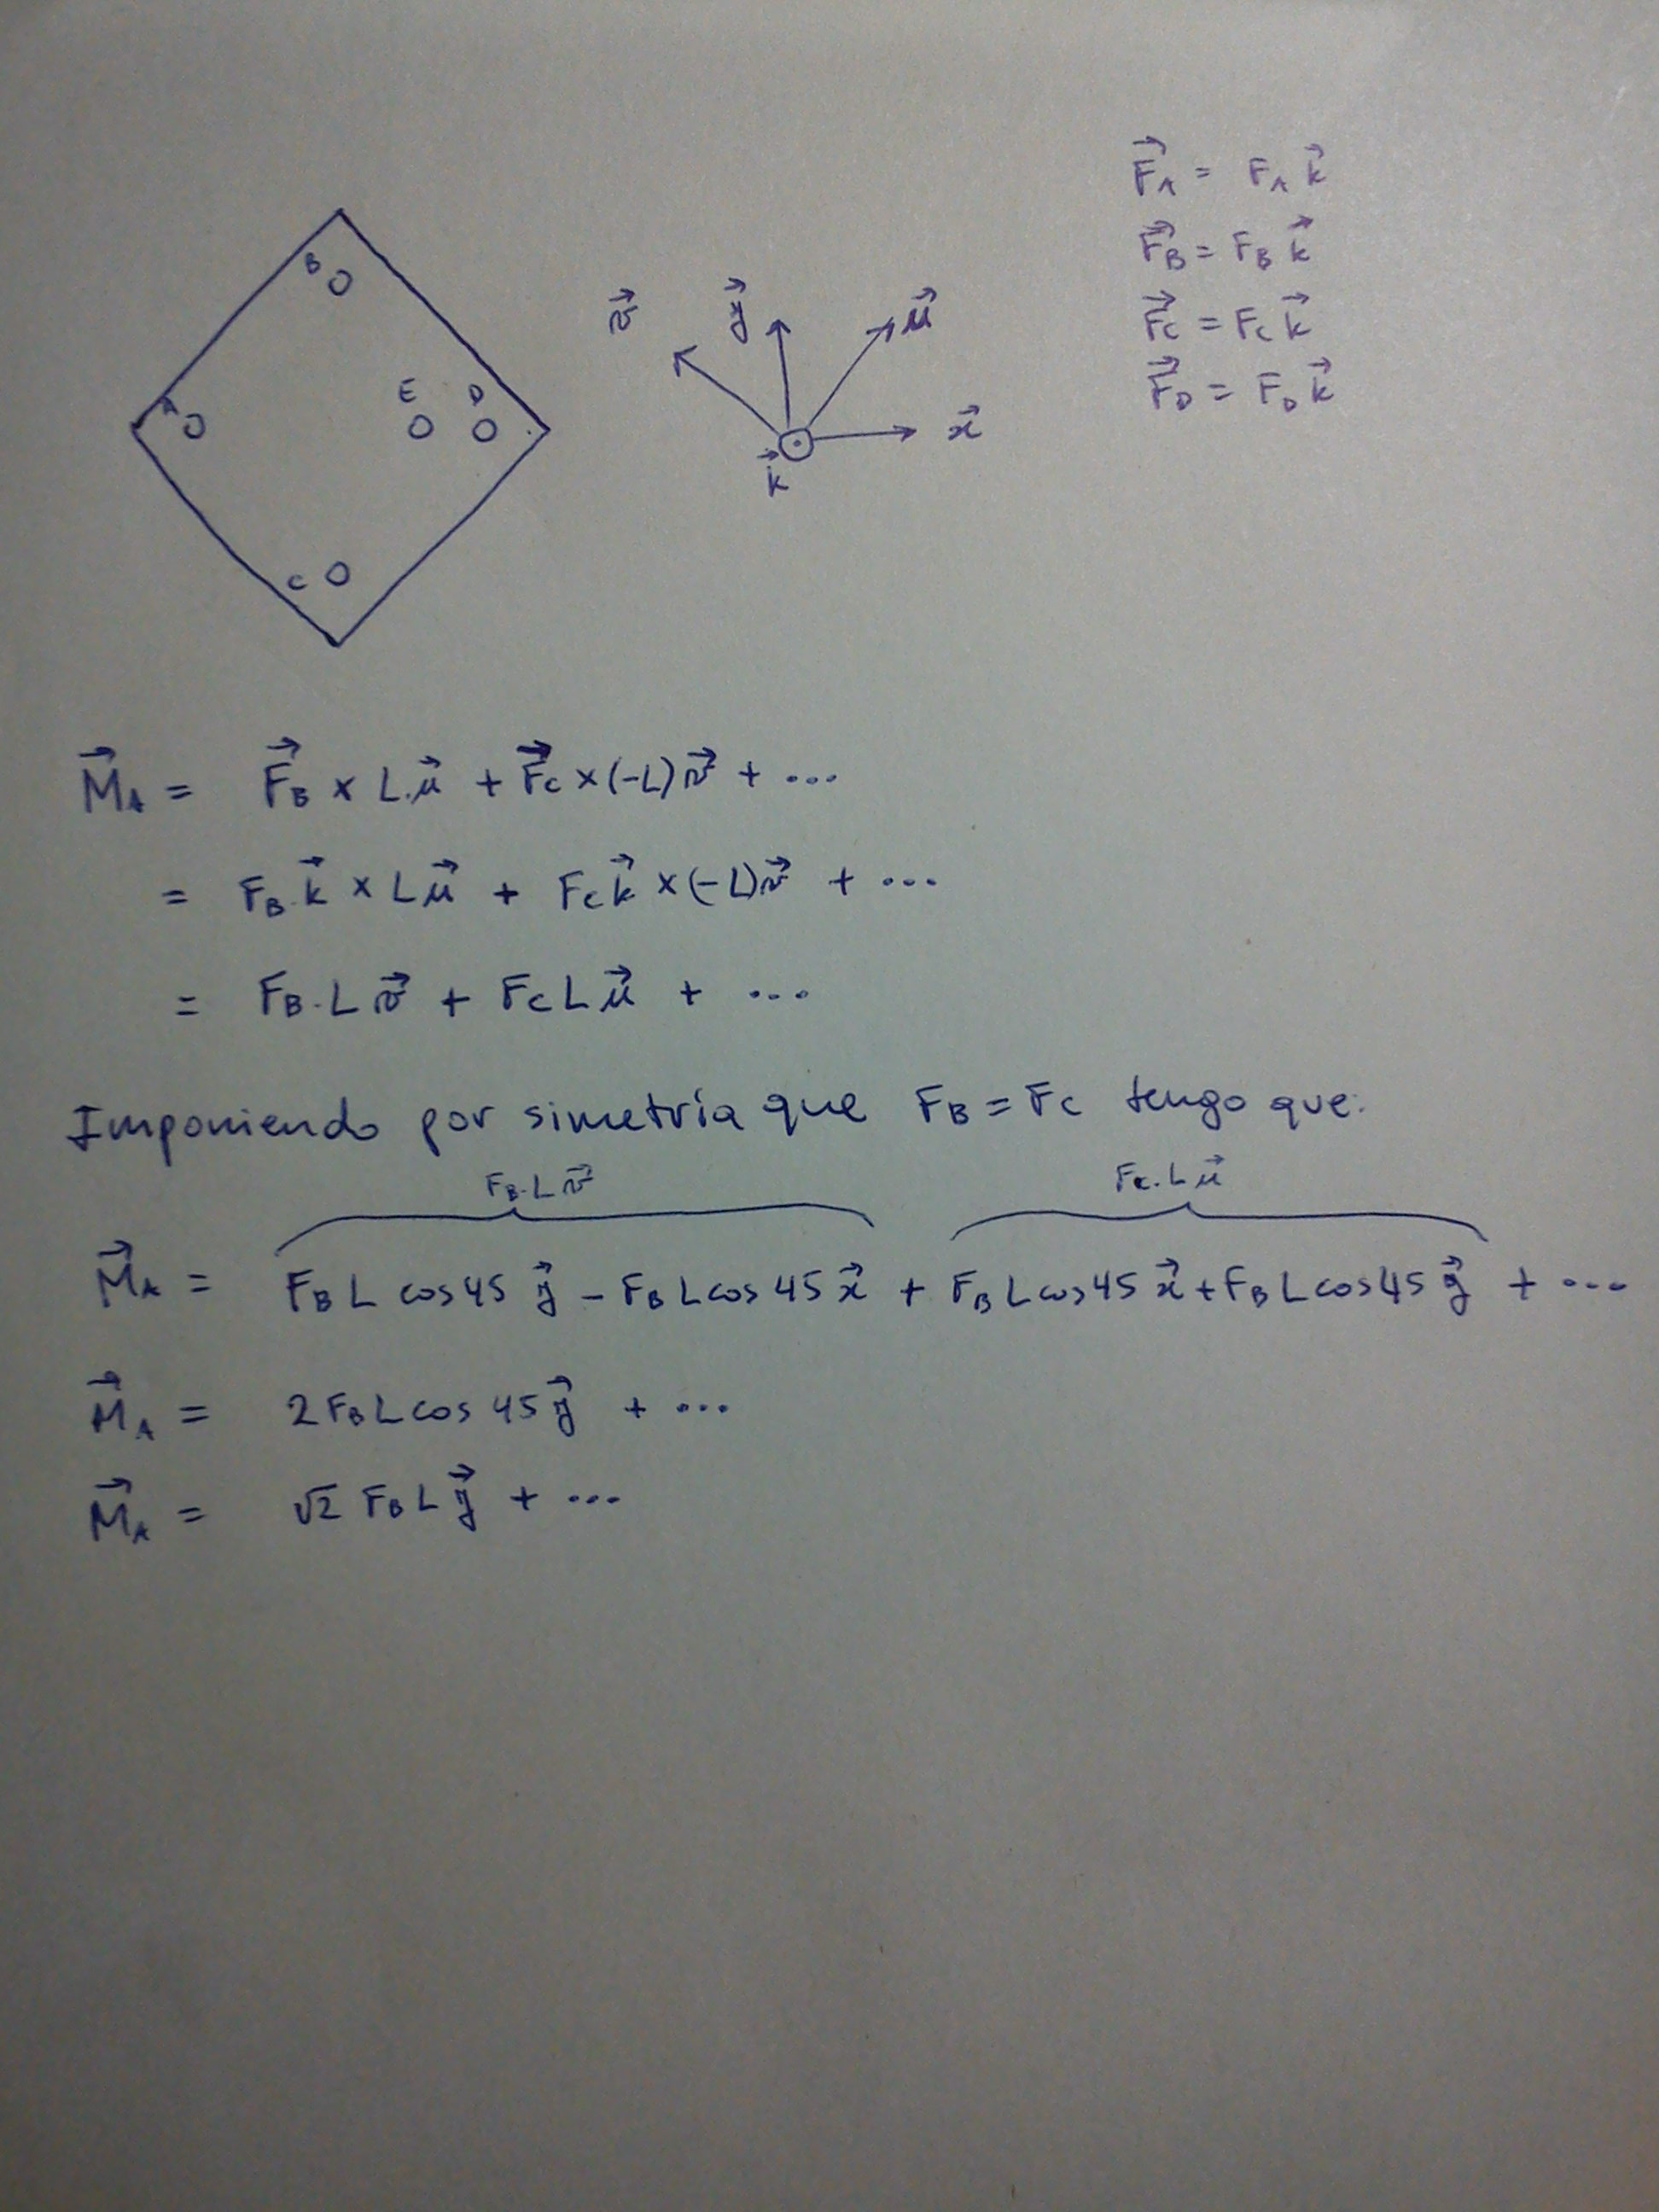 F⃗A = FA k⃗
F⃗B = FB k⃗
F⃗C = FC k⃗
F⃗D = FD k⃗
B
A
E D
C
v⃗ y⃗ u⃗
x⃗
k⃗
M⃗A = F⃗B × L.u⃗ + F⃗C × (-L)v⃗ + ...
= FB.k⃗ × Lu⃗ + FC k⃗ × (-L)v⃗ + ...
= FB.L v⃗ + FC L u⃗ + ...
Imponiendo por simetría que FB = FC tengo que:
FB.L v⃗ FC.L u⃗
M⃗A = FB L cos 45 y⃗ - FB L cos 45 x⃗ + FB L cos 45 x⃗ + FB L cos 45 y⃗ + ...
M⃗A = 2 FB L cos 45 y⃗ + ...
M⃗A = √2 FB L y⃗ + ...